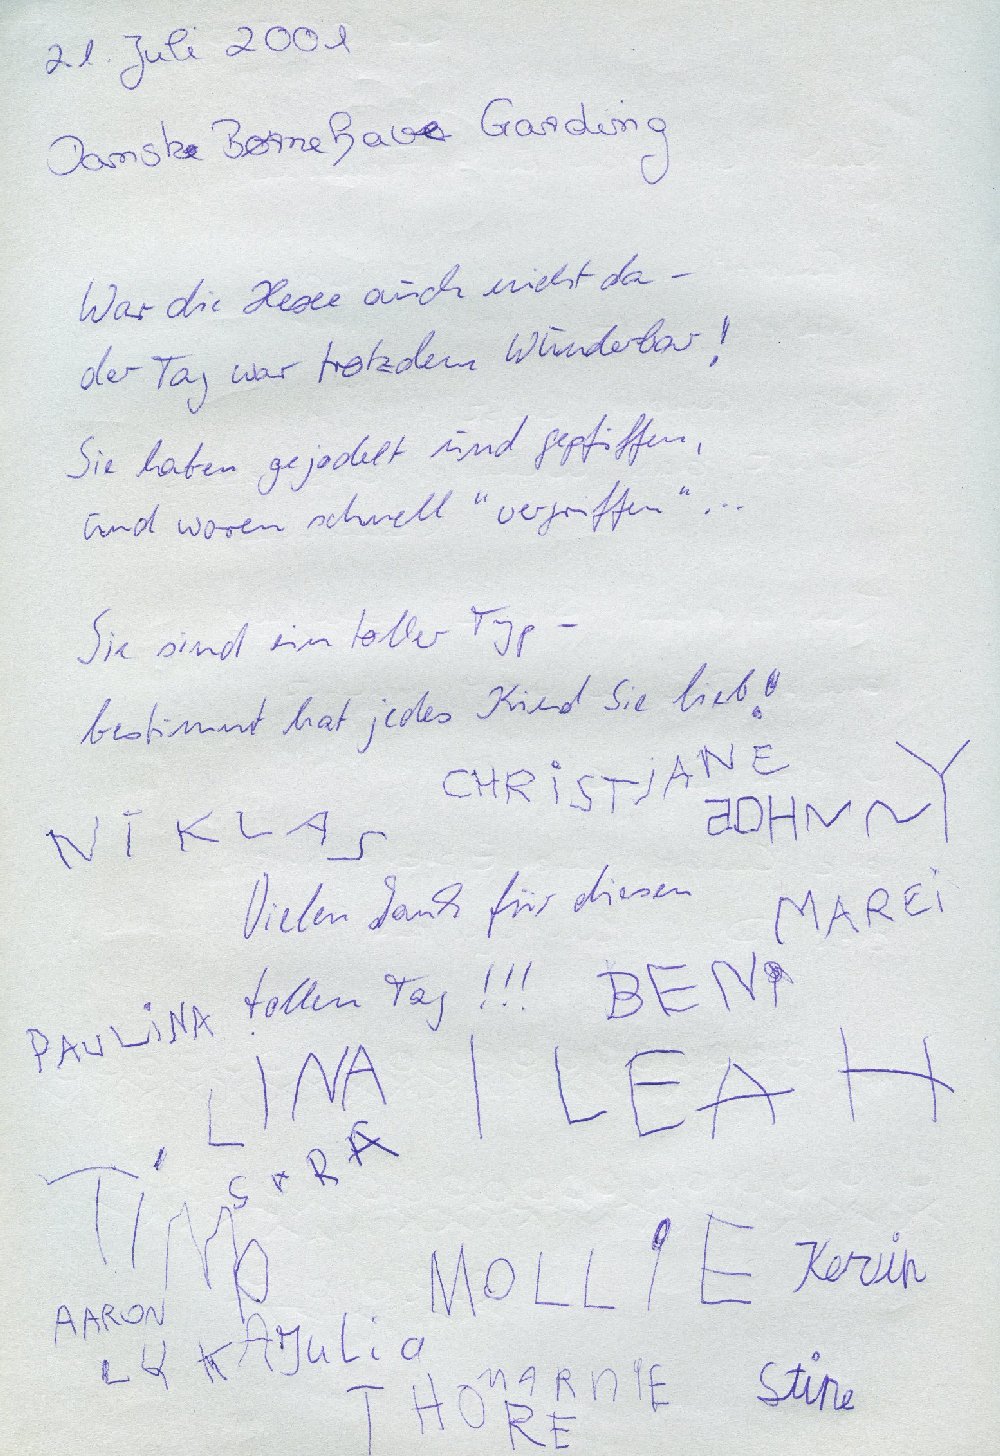 21. Juli 2001
Danske Børnehave Garding
War die Hexe auch nicht da –
der Tag war trotzdem Wunderbar!
Sie haben gejodelt und gepfiffen,
und waren schnell "vergriffen"...
Sie sind ein toller Typ –
bestimmt hat jedes Kind Sie lieb!
CHRiSTJANE
JOHNNY
NIKLAS
Vielen Dank für diesen
MAREi
tollen Tag!!!
BEN
PAULiNA
LINA
LEAH
SARA
TiMO
MOLLiE
Kevin
AARON
Julia
MARNIE
Stine
THORE